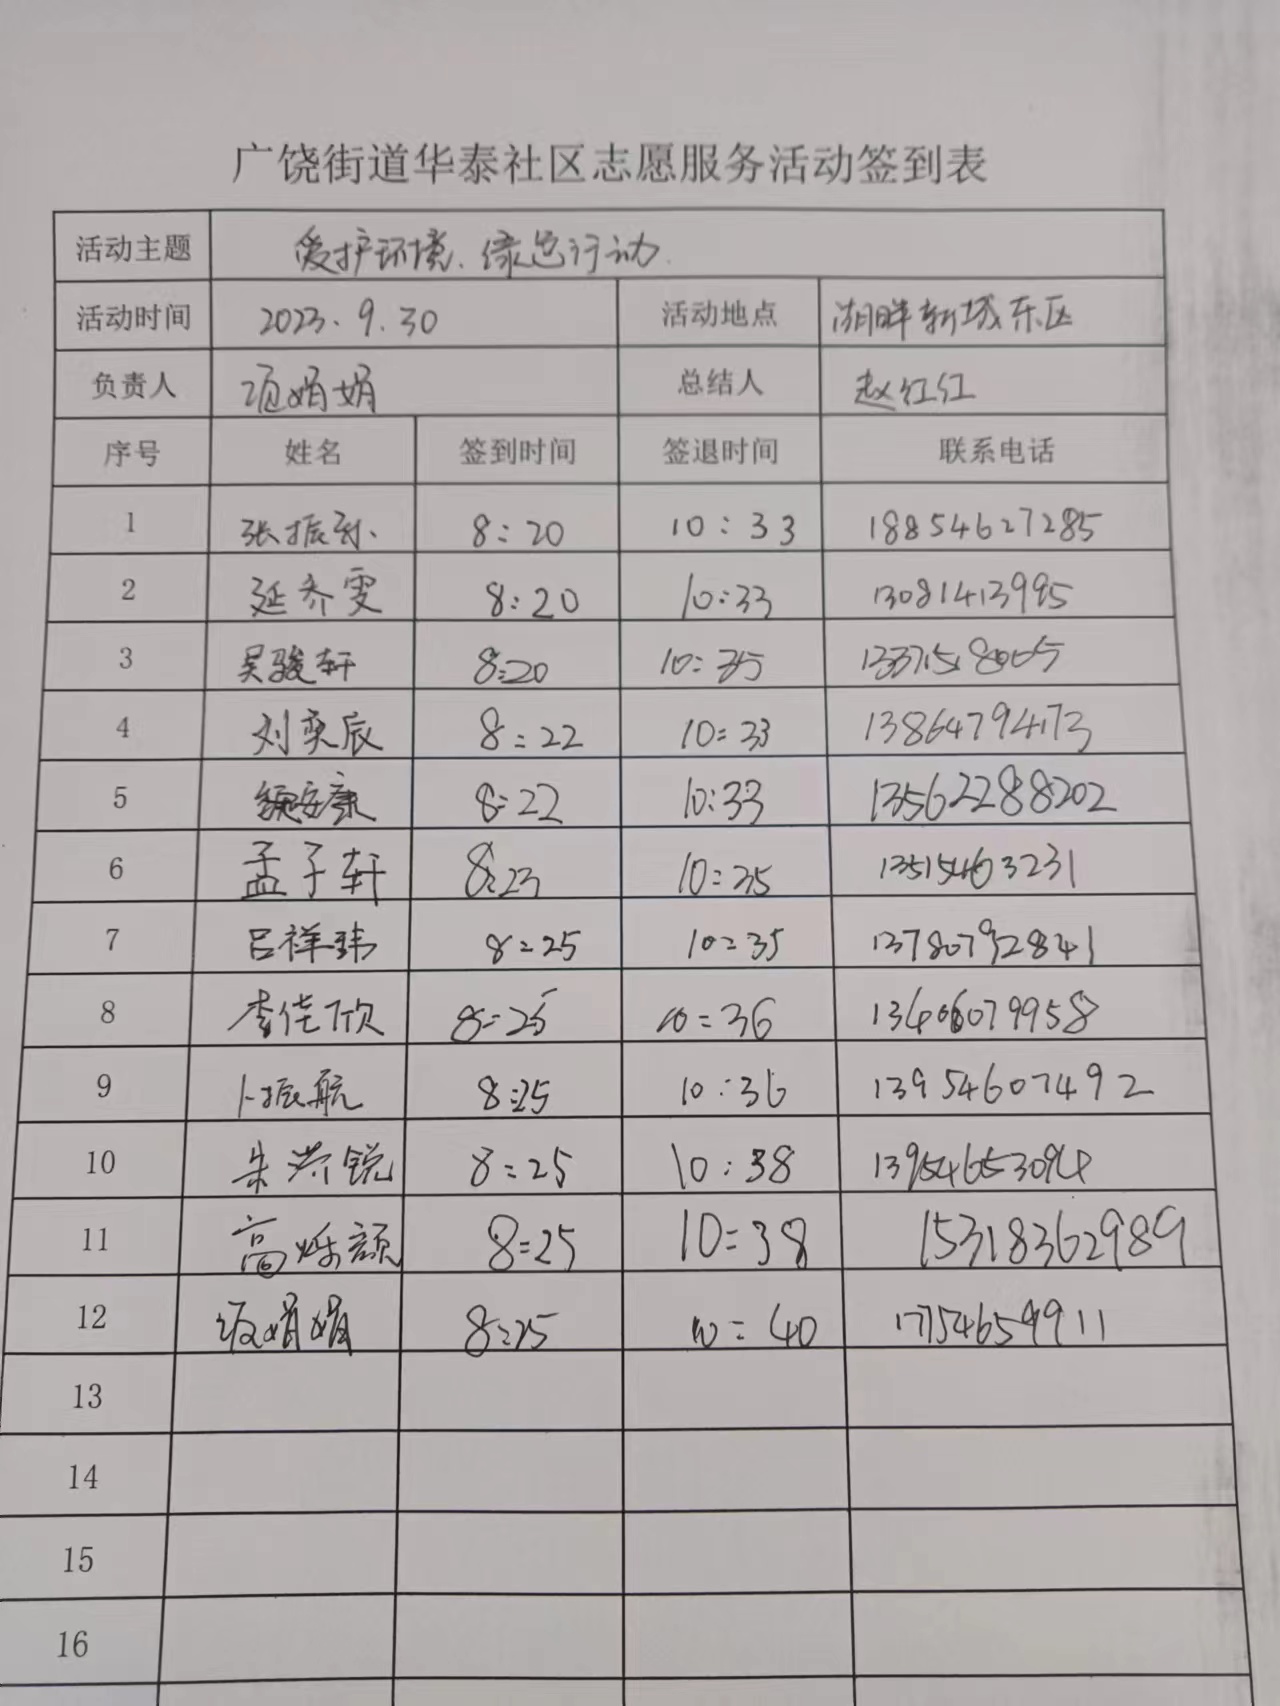 广饶街道华泰社区志愿服务活动签到表
活动主题 爱护环境、绿色行动
活动时间 2023.9.30 活动地点 湖畔新城东区
负责人 项娟娟 总结人 赵红红
序号 姓名 签到时间 签退时间 联系电话
1 张振 8:20 10:33 18854627285
2 延乔雯 8:20 10:33 13081413995
3 吴骏轩 8:20 10:35
4 刘奕辰 8:22 10:33 13864794173
5 安康 8:22 10:33 13562288202
6 孟子轩 8:23 10:35 13515463231
7 吕祥玮 8:25 10:35 13780792841
8 李佳欣 8:25 10:36 13406079958
9 卜振航 8:25 10:36 13954607492
10 朱 锐 8:25 10:38 13954653094
11 高烁颜 8:25 10:38 15318362989
12 项娟娟 8:25 10:40 17754659911
13
14
15
16